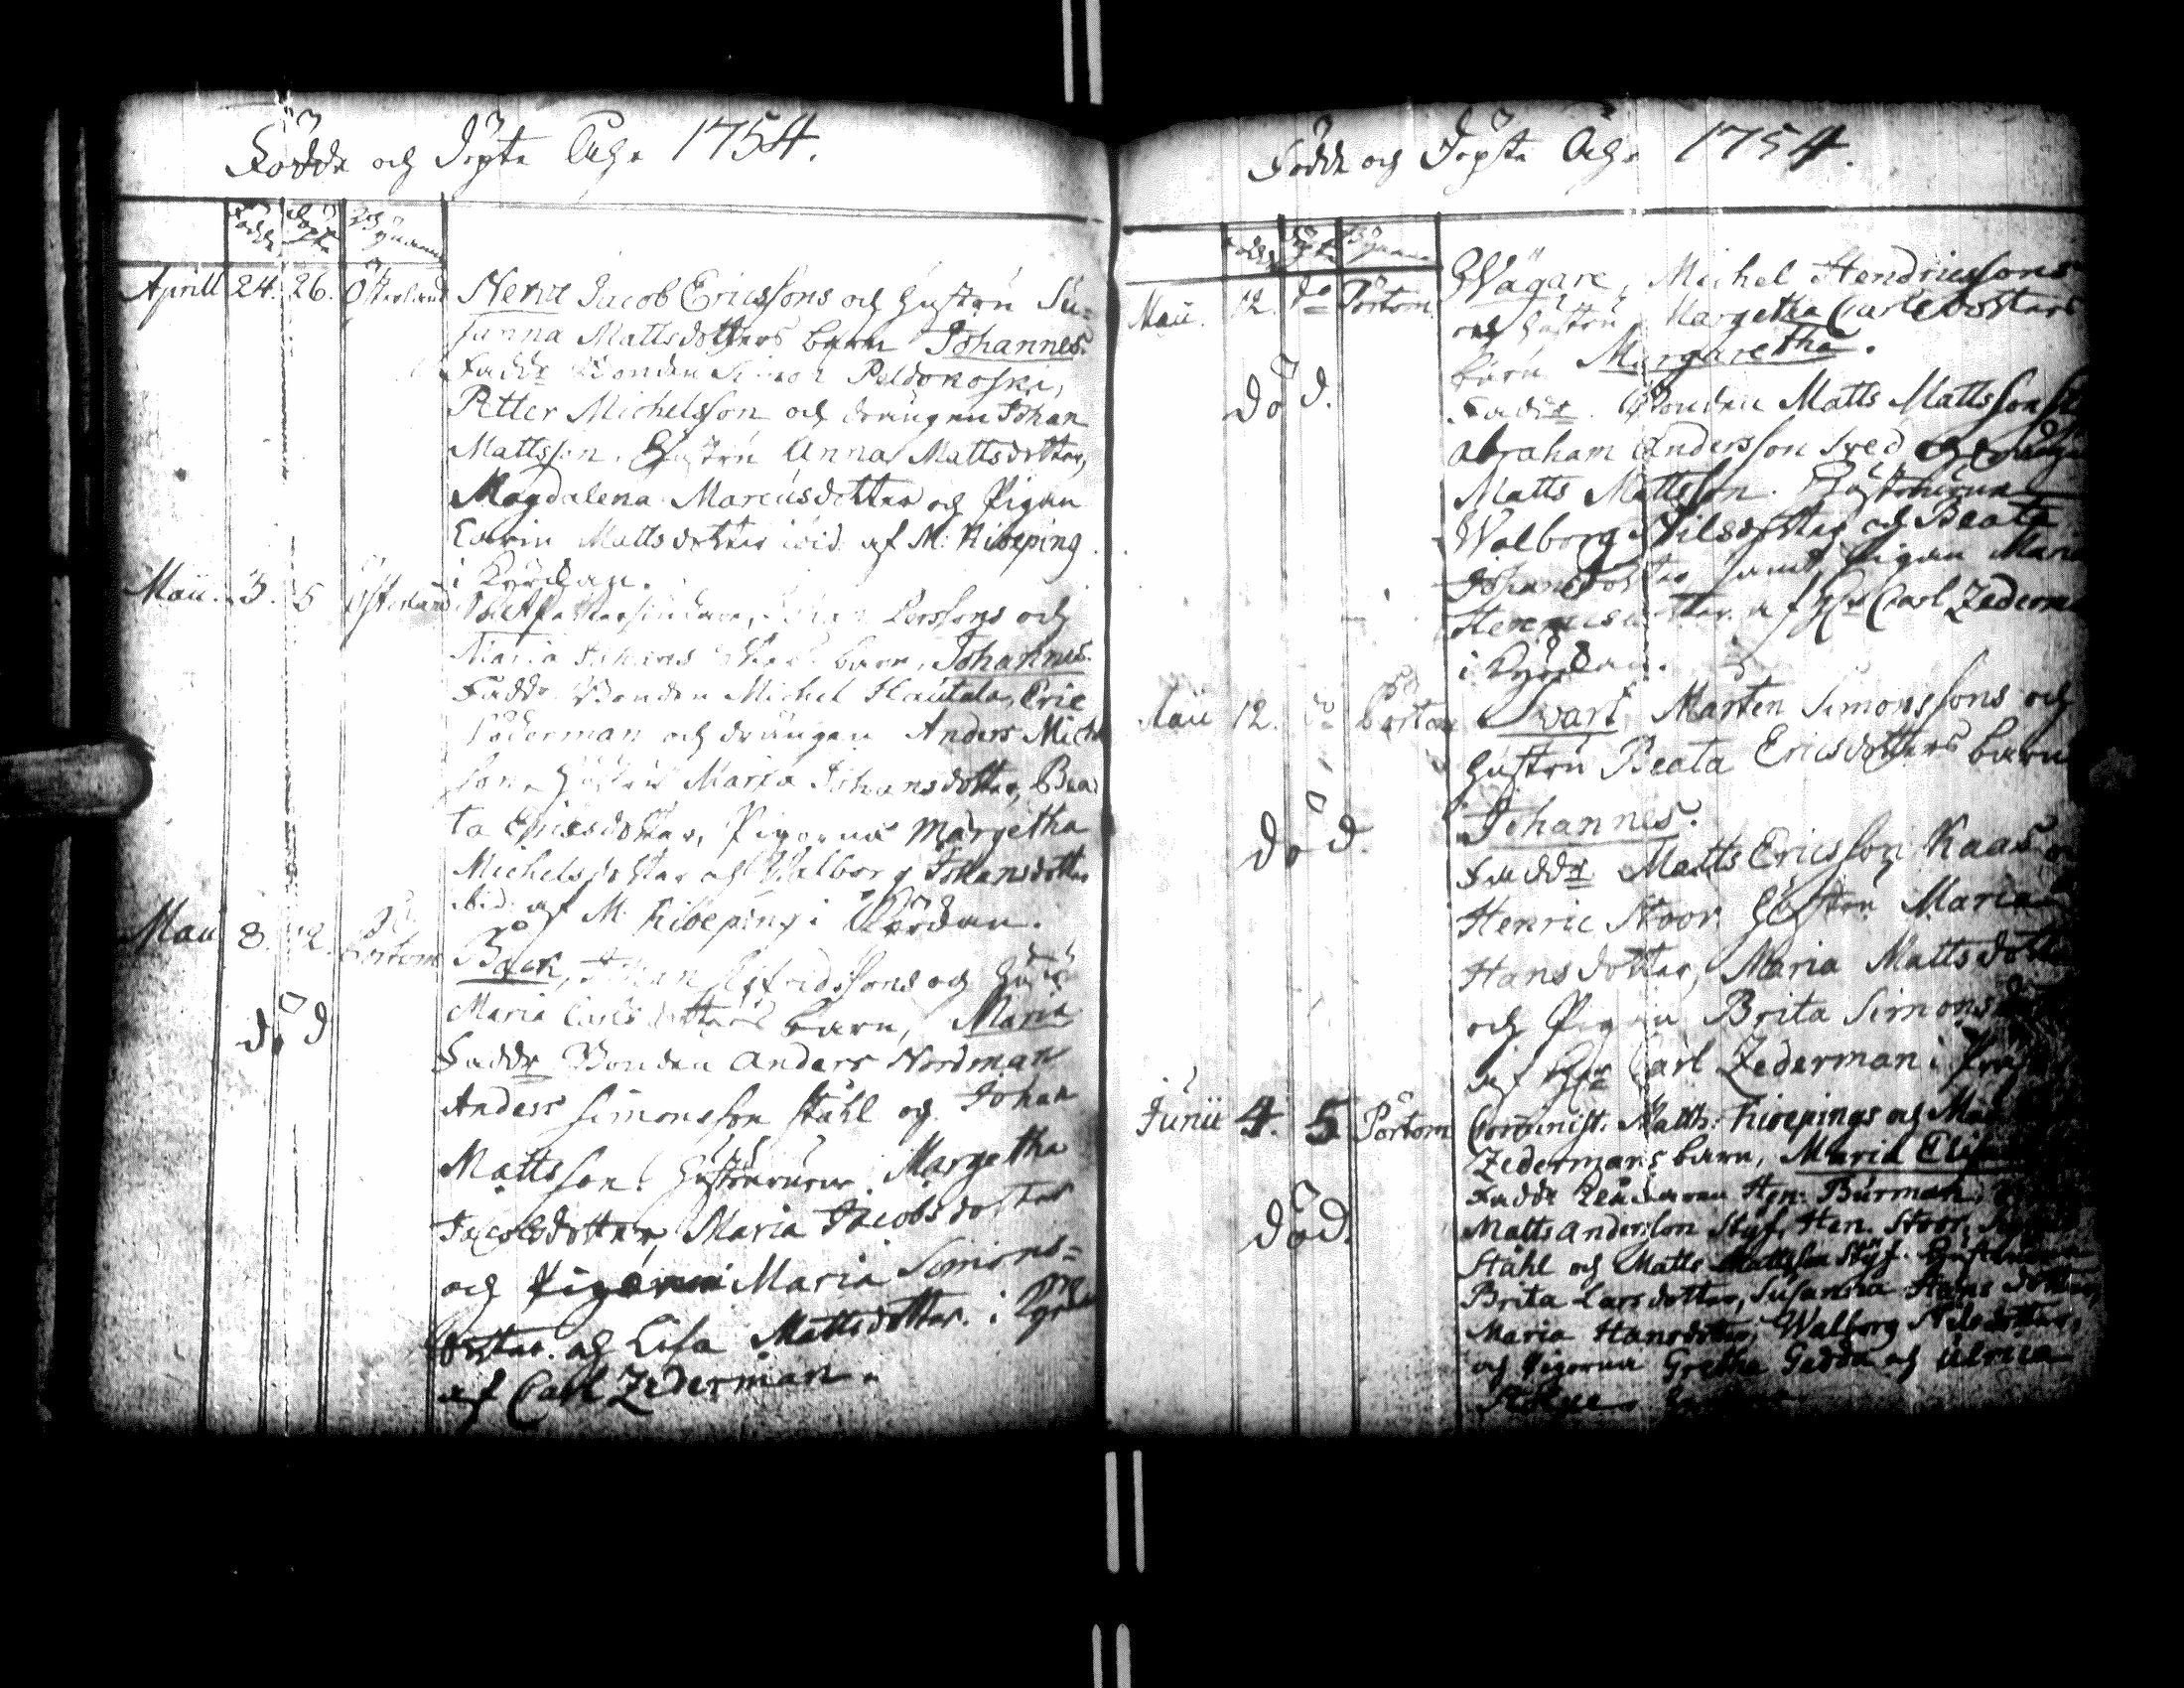 Födde och Döpte Åhr 1754.
Födde Döpte Bynamn
Aprill 24. 26. Österland Hertz Jacob Ericssons och Hustru Su=
sanna Mattsdotters barn Johannes.
Faddr Bonden Simon Peldokoski,
Petter Michelsson och drängen Johan
Mattsson. Hustru Anna Mattsdotter,
Magdalena Marcusdotter och Pigan
Carin Mattsdotter ibid. af M: Kiöeping
i Kyrckan.
Maii. 3. 5 Österland Perssons och
Maria Johansdotters barn, Johannes.
Faddr Bonden Michel Hautala, Eric
Söderman och drängen Anders Michels
son, Hustru Maria Johansdotter, Bea
ta Ericsdotter, Pigorna Margetha
Michelsdotter och Walborg Johansdotter
ibid. af M. Kiöeping i Kyrckan.
Maii 8. 12. Pörtom Bäck, Johan Sifridssons och Hustru
Maria Carlsdotters barn, Maria
död
Faddr Bonden Anders Nordman
Anders Simonsson Ståhl och Johan
Mattsson. Hustrurna Margetha
Jacobsdotter, Maria Jacobsdotter
och Pigorna Maria Simons=
dotter och Lisa Mattsdotter i Kyrckan
af Carl Zederman.
Födde och Döpte Åhr 1754.
Födde Döpte Bynamn
Maii. 12. do Pörtom. Wägare, Michel Hendricssons
och Hustru Margetha Carlsdotters
barn Margaretha.
död.
Faddr. Bonden Matts Mattsson
Abraham Andersson Sved och drängen
Matts Mattsson. Hustrurna
Walborg Nilsdotter och Beata
Johansdotter samt Pigan Maria
af Hr Carl Zederman
i Kyrckan.
Maii 12. do Pörtom Svart, Mårten Simonssons och
Hustru Beata Ericsdotters barn
Johannes.
död.
Faddr Matts Ericsson Kaas och
Henric Stoor. Hustru Maria
Hansdotter, Maria Mattsdotter
och Pigan Brita Simons
af Hr Carl Zederman i
Junii 4. 5 Pörtom Comminist. Matth: Kiöepings och
Zedermans barn, Maria
död.
Faddr Hen: Burman,
Matts Andersson Styf. Hen. Stoor,
Ståhl och Matts Mattsson Styf. Hustrurna
Brita Larsdotter, Susanna Hans dotter,
Maria Hansdotter, Walborg Nilsdotter,
och Pigorna Gretha Gadda och Ulrica